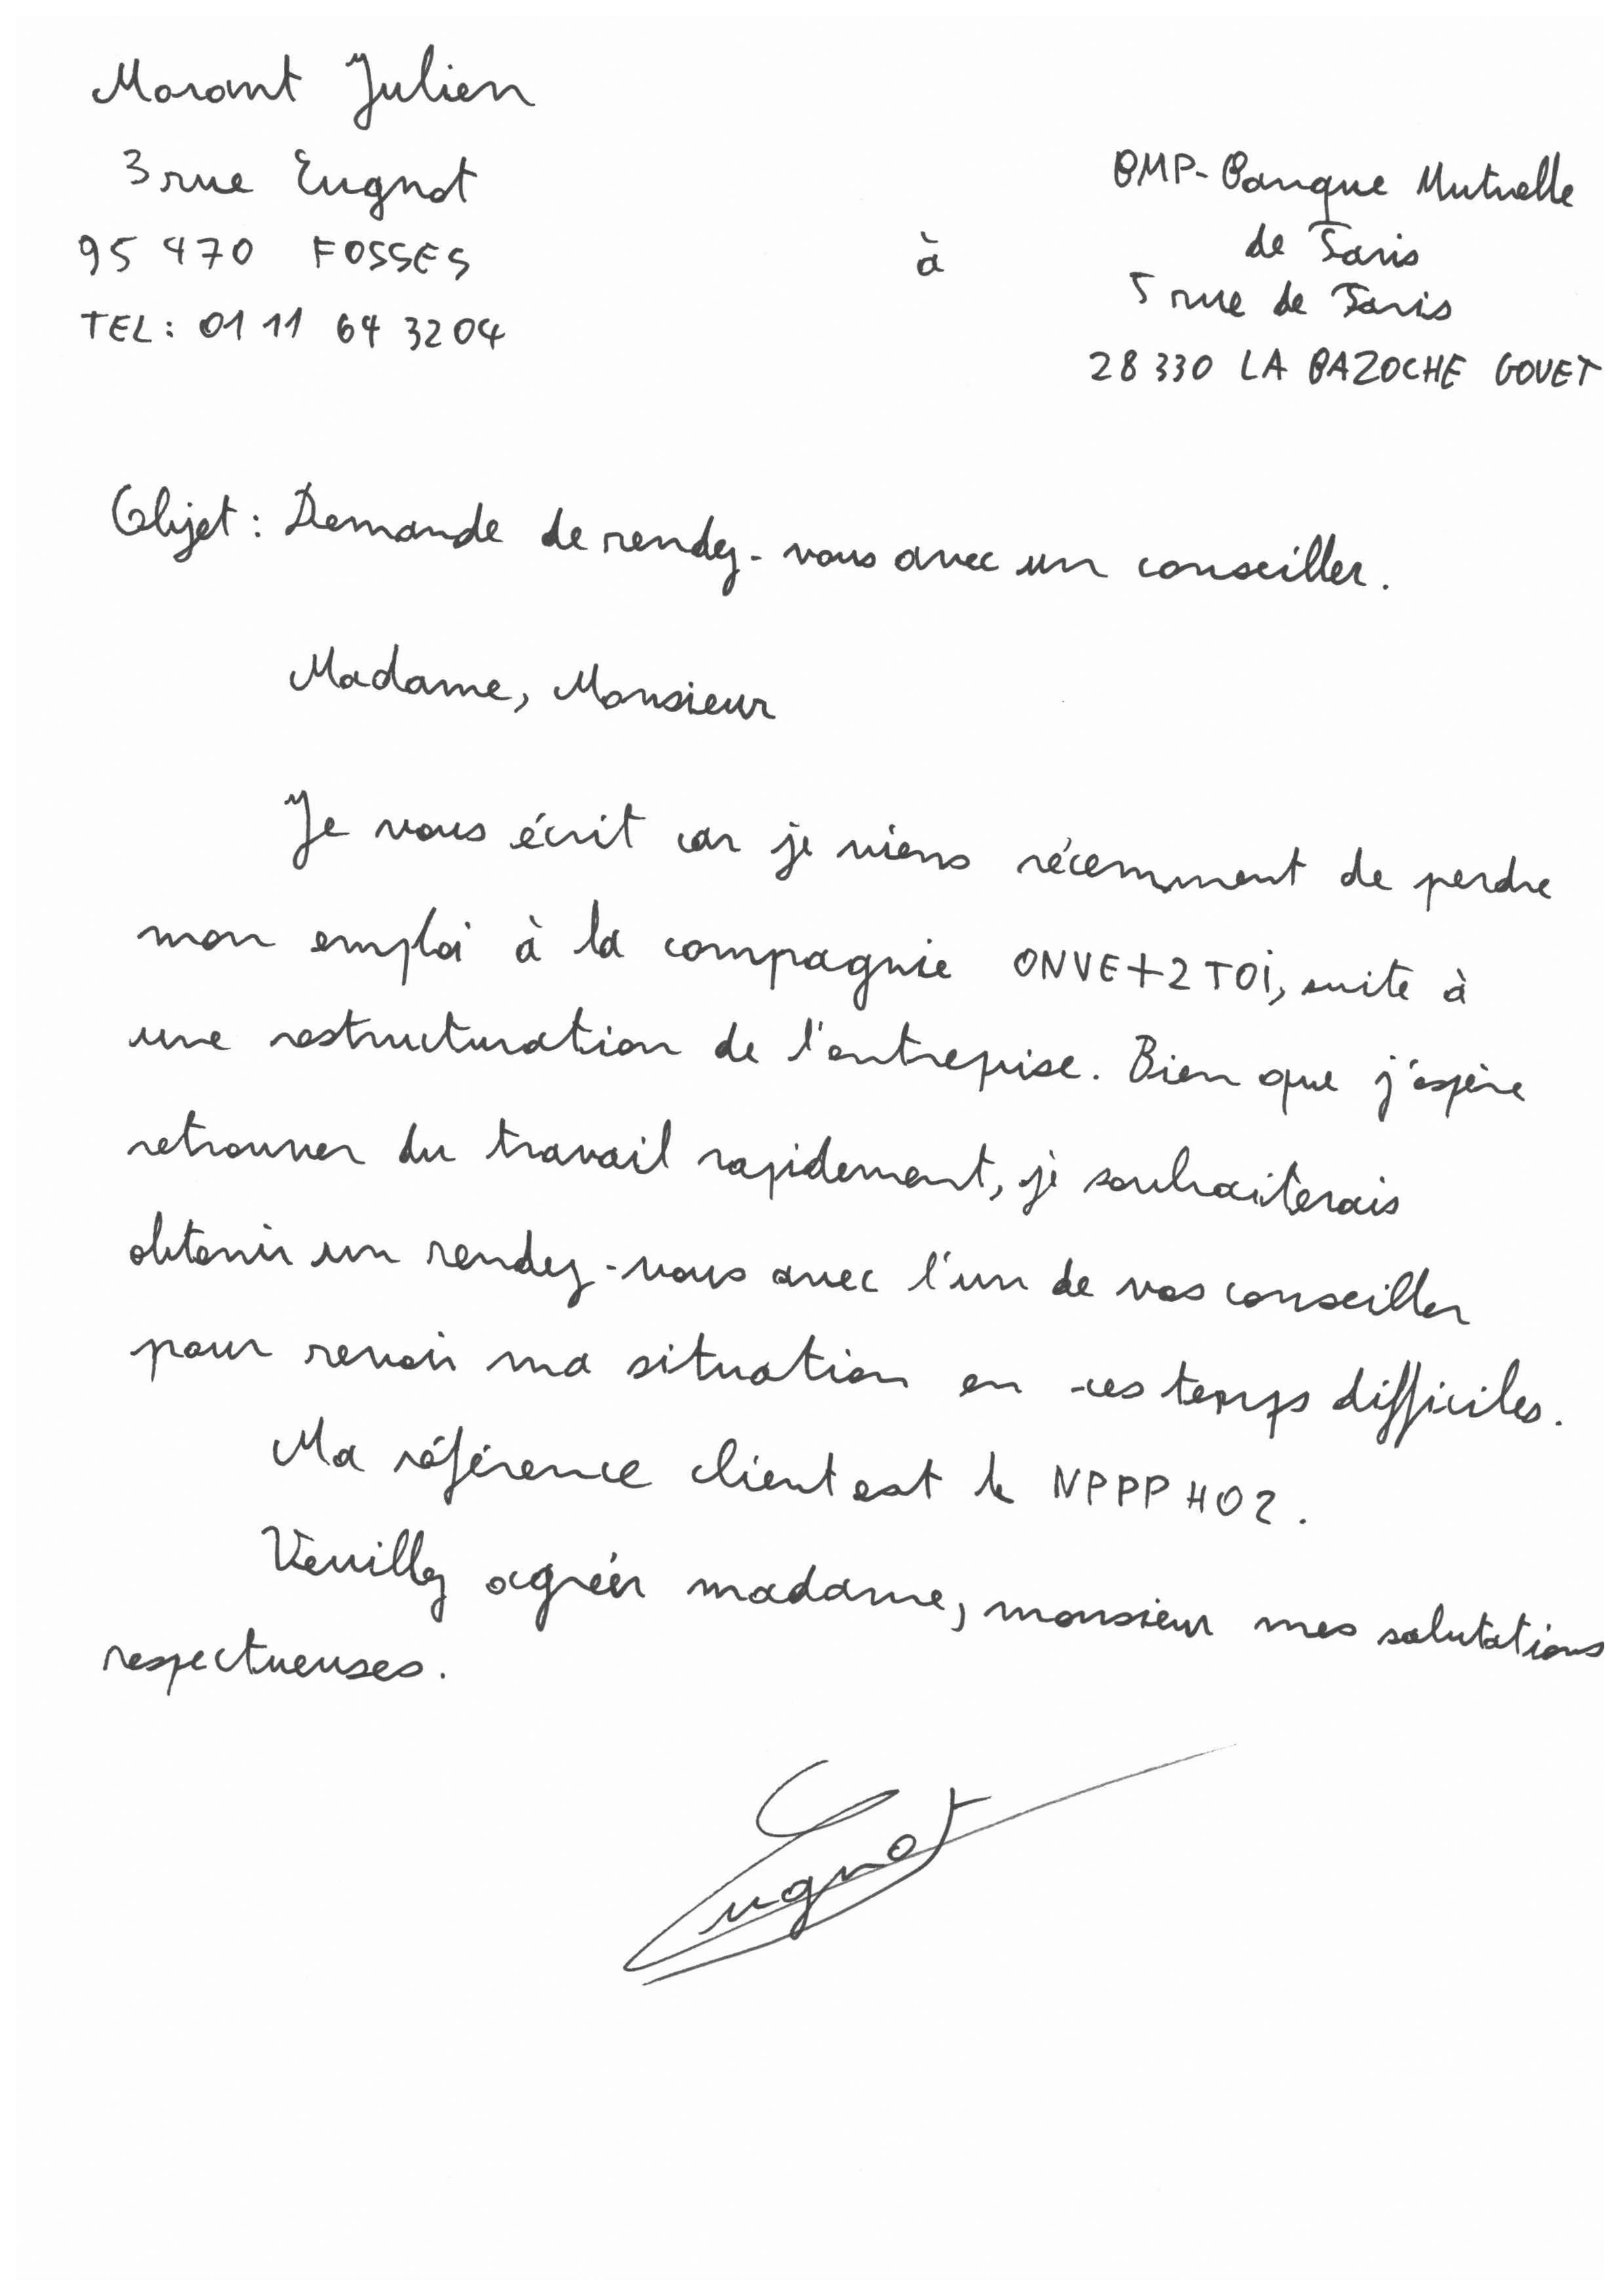 Morant Julien
3 rue Eugnot
95 470 FOSSES
TEL: 01 11 64 32 04
à
BMP-Banque Mutuelle
de Paris
5 rue de Paris
28 330 LA BAZOCHE GOUET
Objet: Demande de rendez-vous avec un conseiller.
Madame, Monsieur
Je vous écrit car je viens récemment de perdre
mon emploi à la compagnie ONVE+2TOi, suite à
une restructuration de l'entrepise. Bien que j'espère
retrouver du travail rapidement, je souhaiterais
obtenir un rendez-vous avec l'un de vos conseiller
pour revoir ma situation en ces temps difficiles.
Ma référence client est le NPPPH02.
Veuillez agréer madame, monsieur mes salutations
respectueuses.
Eugnot